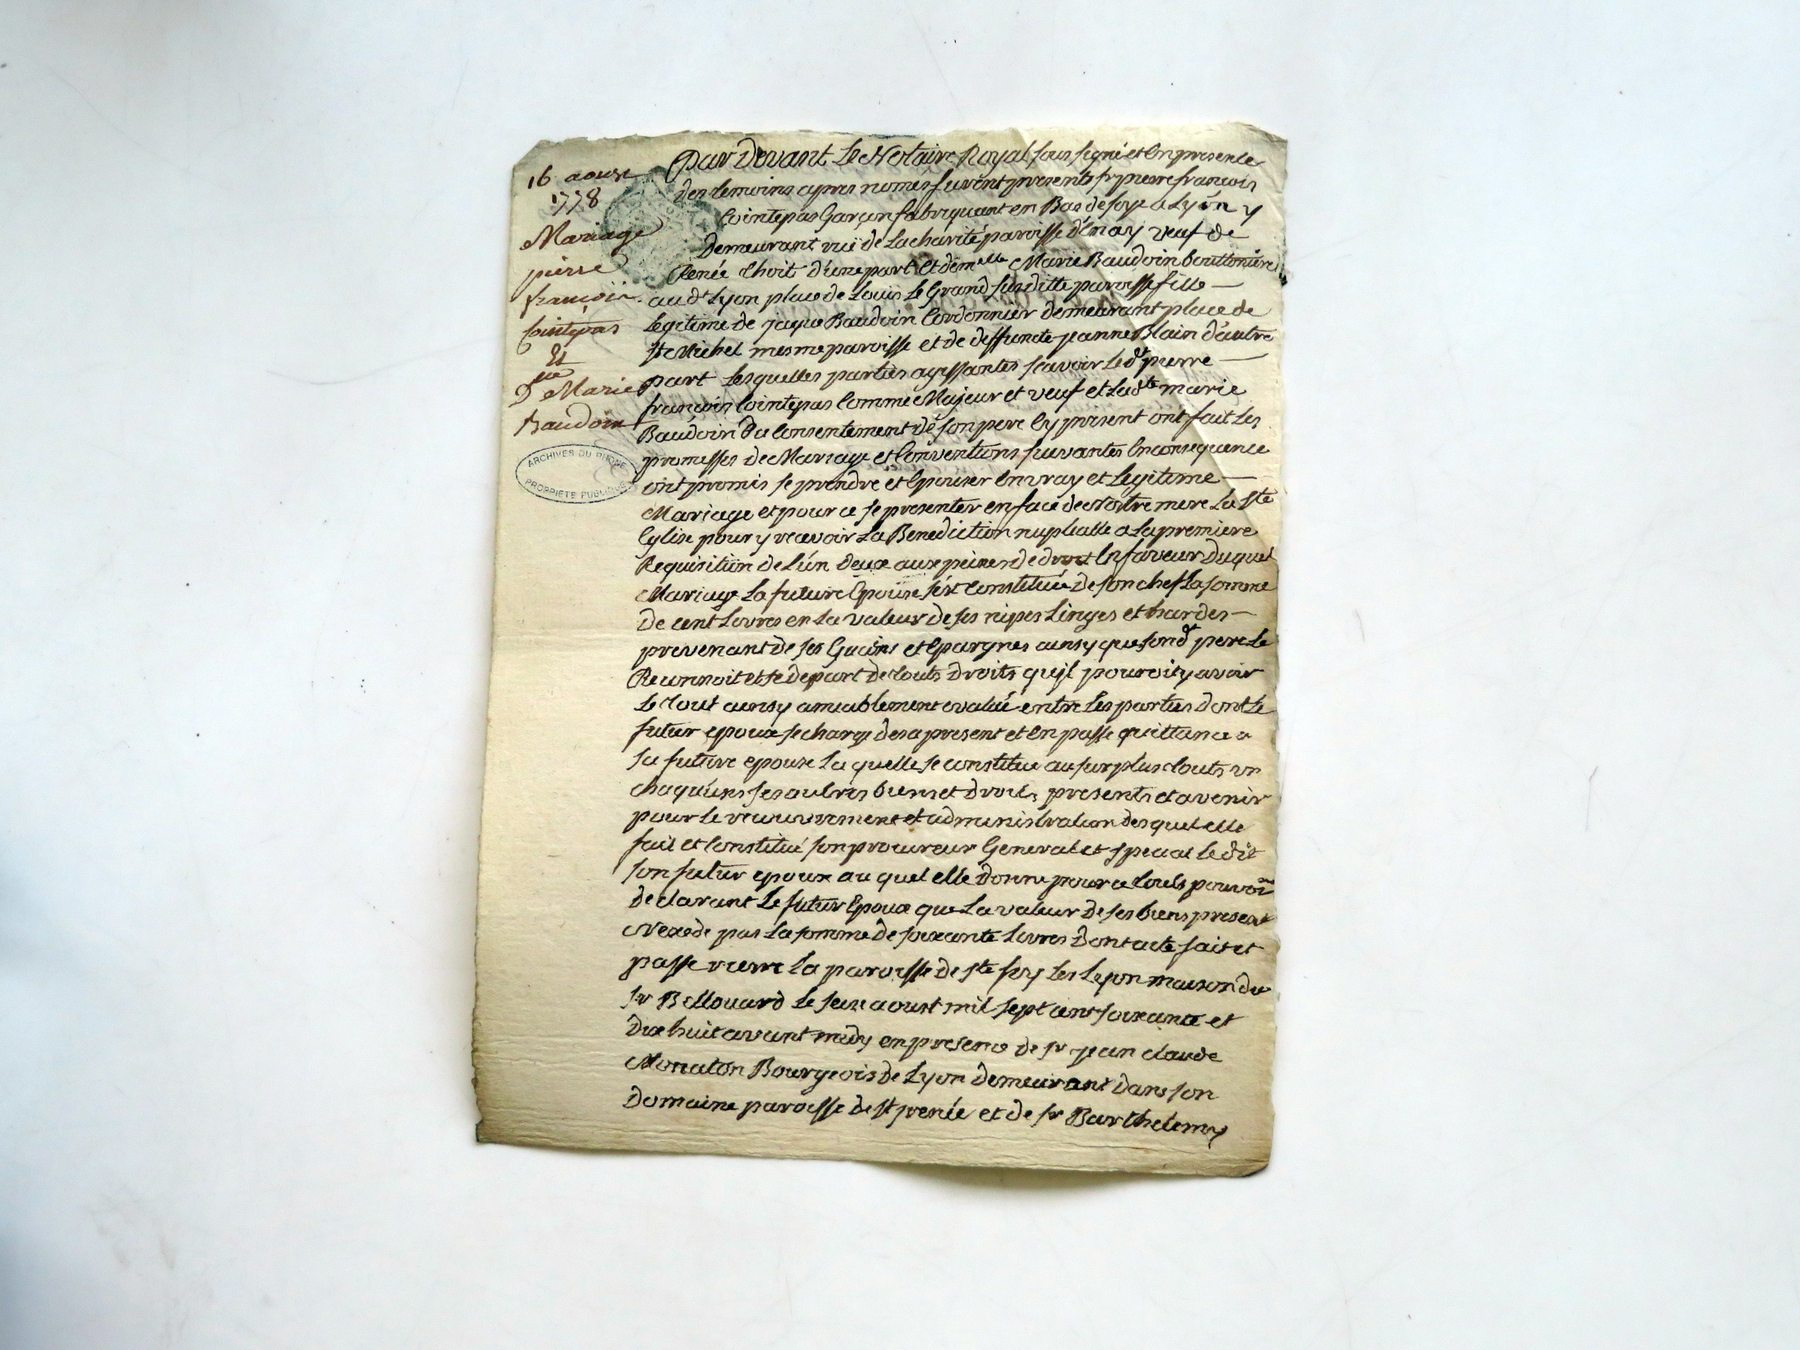 16 aoust
1778
Mariage
pierre
françois
Cointepas
Et
Dlle Marie
Baudoin
ARCHIVES DU RHONE
PROPRIETE PUBLIQUE
Par Devant Le Notaire Royal sous signé et en presence
des temoins apres només furent presents sr pierre francois
Cointepas Garçon fabriquant en Bas de soye a Lyon y
Demeurant rüe de La charité paroisse d'Enay veuf de
Renée d'une part et demelle Marie Baudoin bouttonniere
au dt Lyon place de Louis Le Grand susditte paroisse fille
Legitime de jaque Baudoin Cordonnier demeurant place de
St Michel mesme paroisse et de deffuncte jeanne Blain d'autre
part Lesquelles parties agissantes scavoir Le dt pierre
francois Cointepas Comme Majeur et veuf et La dte marie
Baudoin du Consentement de son pere Cy present ont fait Les
promesses de Mariage et Conventions suivantes En consequence
ont promis se prendre et Epouser En vray et Legitime
Mariage et pour ce se presenter en face de Nostre mere La Ste
Eglise pour y recevoir La Benediction nuptialle a La premiere
Requisition de L'un deux aux peines de droit En faveur Duquel
Mariage La future Epouse s'est Constituée de son chef La somme
De cent Livres en La valeur de ses nipes Linges et hardes
provenant de ses Gains et Epargnes ainsy que son dt pere Le
Reconnoit et se depart de touts Droits qu'il pouroit y avoir
Le tout ainsy amiablement evalué entre Les parties dont Le
futur epoux se charge des a present et En passe quittance a
sa future epouse La quelle se constitue au surplus touts un
chaquúns ses autres biens et droits presents et avenir
pour Le recouvrement et administration desquel elle
fait et Constitué son procureur General et special Le dit
son futur epoux au quel elle Donne pour ce touts pouvoir
declarant Le futur Epoux que La valeur de ses biens present
N'exede pas La somme De soixante Livres Dont acte fait et
passé riere La paroisse de Ste foy Les Lyon maison du
sr Bellouard Le seize aoust mil sept cent soixante et
Dix huit avant midy en presence de sr jean claude
Monaton Bourgeois de Lyon demeurant dans son
Domaine paroisse de St jrenée et de sr Barthelemy